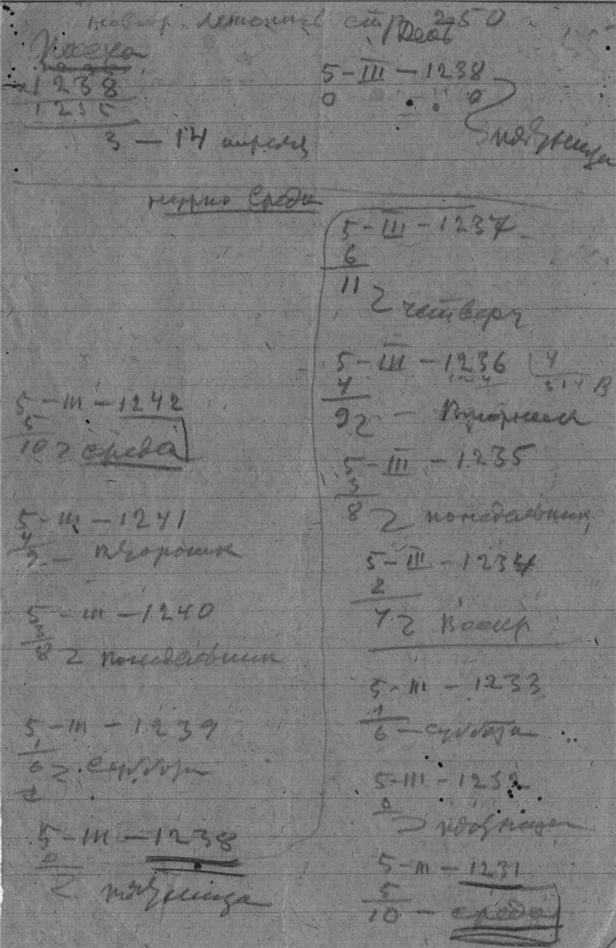 стр 250
Пасха
1238
1235
3 – 14 апреля
5–III–1238
0 0
пятница
нужно Среда
5–III–1242
5
10 2 среда
5–III–1241
4
9 – вторник
5–III–1240
3
8 2 понедельник
5–III–1239
1
6 2 суббота
5–III–1238
0
2 пятница
5–III–1237
6
11 2 четверг
5–III–1236 4
4
9 2 – Вторник
5–III–1235
3
8 2 понедельник
5–III–1234
2
7 2 Воскр
5–III–1233
1
6 – суббота
5–III–1232
0
2 пятница
5–III–1231
5
10 – среда